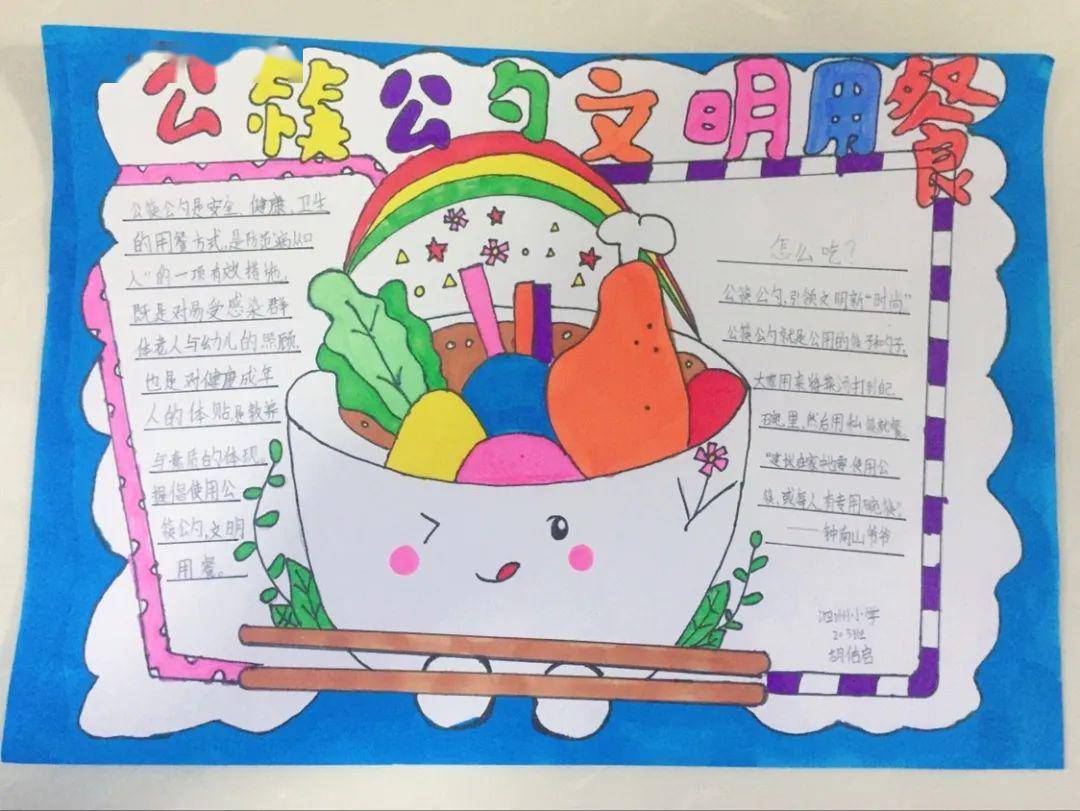 公筷公勺文明用餐
公筷公勺是安全、健康、卫生
的用餐方式，是防范病从口
入"的一项有效措施，
既是对易受感染群
体老人与幼儿的照顾，
也是对健康成年
人的体贴，是教养
与素质的体现。
提倡使用公
筷公勺，文明
用餐。
怎么吃？
公筷公勺，引领文明新"时尚"
公筷公勺就是公用的筷子和勺子，
大家用来将菜汤打到自己
碗里，然后用私筷就餐。
"建议在家也要使用公
筷，或每人有专用碗筷"。
——钟南山爷爷
泗州小学
203班
胡佑启